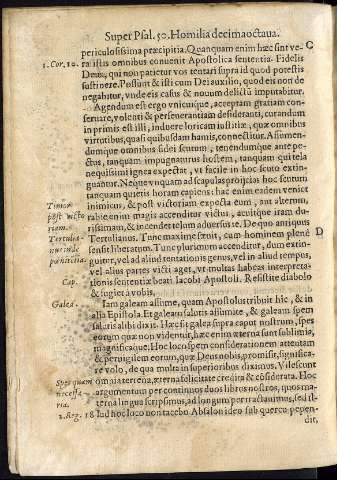 Super Psal. 50. Homilia decimaoctaua.
periculosissima præcipitia. Quanquam enim hæc sint ve-
C
1. Cor. 10.
ra istis omnibus conuenit Apostolica sententia. Fidelis
Deus, qui non patietur vos tentari supra id quod potestis
sustinere. Posſunt & isti cum Dei auxilio, quod eis non de
negabitur, vnde eis casus & nouum delictũ imputabitur.
Agendum est ergo vnicuique, acceptam gratiam con-
seruare, volenti & perseuerantiam desideranti, curandum
in primis est illi, induere loricam iustitiæ, quæ omnibus
virtutibus, quasi quibusdam hamis, connectitur. Assumen-
dumque omnibus fidei scutum, tenendumque ante pe-
ctus, tanquam impugnaturus hostem, tanquam qui tela
nequissimi ignea expectat, vt facile in hoc scuto extin-
guantur. Neque vnquam ad scapulas projicias hoc scutum
tanquam quietis horam sapiens: hac enim eadem venict
inimicus, & post victoriam expecta eum, aut alterum,
rabie enim magis accenditur victus, acuitque iram du-
rissimam, & incendet telum aduersus te. De quo antiquus
Timor
post victo
riam.
Tertulia-
nus in de
pœnitẽtia
Tertulianus. Tunc maxime sæuit, cum hominem plenè
D
sensit liberatum. Tunc plurimum accenditur, dum extin-
guitur, vel ad aliud tentationis genus, vel in aliud tempus,
vel alius partes victi aget, vt multas habeas interpreta-
Cap.
tionis sententiæ beati Iacobi Apostoli. Resistite diabolo
& fugiet à vobis.
Galea.
Iam galeam assume, quam Apostolus tribuit hîc, & in
alia Epistola. Et galeam salutis assumite, & galeam spem
salutis alibi dixit. Hæc sit galea supra caput nostrum, spes
eorum quæ non videntur, hæc enim æterna sunt sublimia,
magnificaque. Hoc loco spem considerationem attentam
& peruigilem eorum, quæ Deus nobis promisit, significa-
re volo, de qua multa in superioribus diximus. Vilescunt
Spes quam
necessa-
ria.
omnia terrena, æterna felicitate credita & cõsiderata. Hoc
argumentum per continuos duos libros nostros, quos ma-
terna lingua scripsimus, ad longum pertractauimus, sed il-
2. Reg. 18
lud hoc loco non tacebo. Absalon ideo sub quercu pepen-
dit,